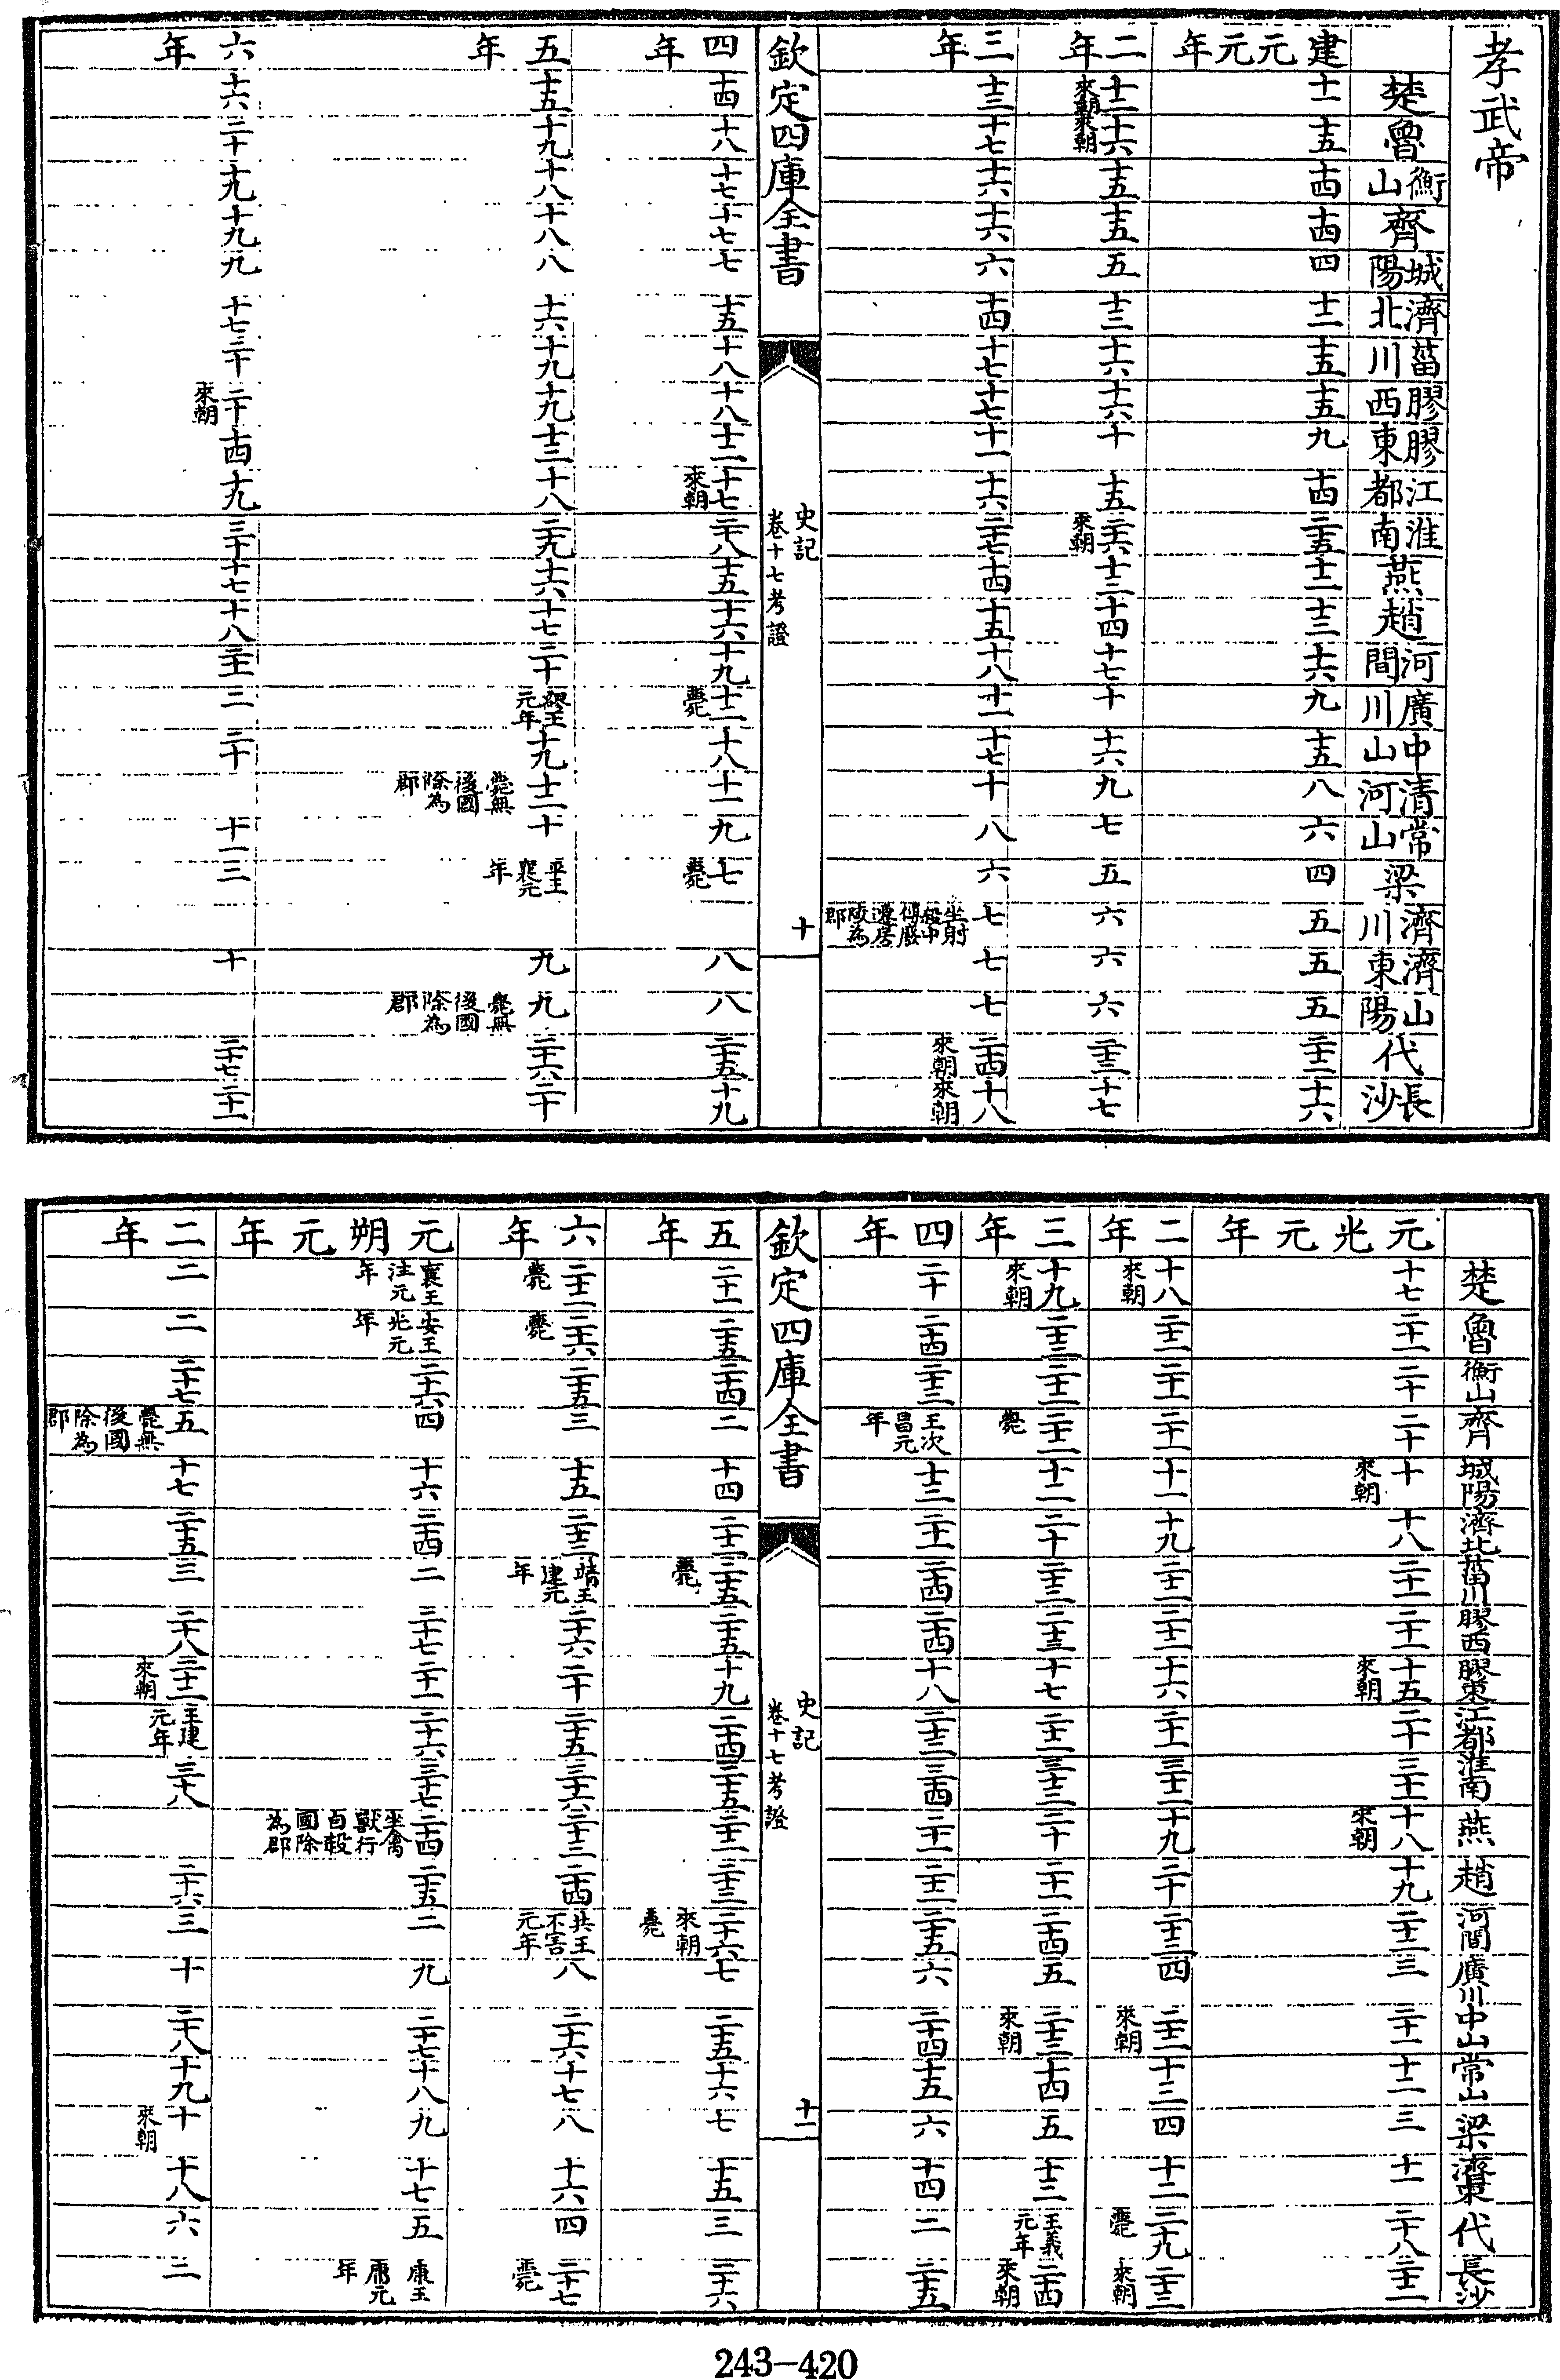 孝武帝
楚 魯 衡山 齊 城陽 濟北 菑川 膠西 膠東 江都 淮南 燕 趙 河間 廣川 中山 清河 常山 梁 濟川 濟東 山陽 代 長沙
建元元年 十一 十五 十四 十四 四 十二 十五 十五 九 十四 二十五 十二 十三 十六 九 十五 八 六 四 五 五 五 二十二 十六
二年 十二來朝 十六來朝 十五 十五 五 十三 十六 十六 十 十五 二十六來朝 十三 十四 十七 十 十六 九 七 五 六 六 六 二十三 十七
三年 十三 十七 十六 十六 六 十四 十七 十七 十一 十六 二十七 十四 十五 十八 十一 十七 十 八 六 七坐射殺中傅廢遷房陵為郡 七 七 二十四來朝 十八來朝
欽定四庫全書 史記卷十七考證 十
四年 十四 十八 十七 十七 七 十五 十八 十八 十二 十七來朝 二十八 十五 十六 十九 十二薨 十八 十一 九 七薨 八 八 二十五 十九
五年 十五 十九 十八 十八 八 十六 十九 十九 十三 十八 二十九 十六 十七 二十 繆王元年 十九 十二薨無後國除為郡 十 平王襄元年 九 九薨無後國除為郡 二十六 二十
六年 十六 二十 十九 十九 九 十七 二十 二十來朝 十四 十九 三十 十七 十八 二十一 二 二十 十一 三 十 二十七 二十一
楚 魯 衡山 齊 城陽 濟北 菑川 膠西 膠東 江都 淮南 燕 趙 河間 廣川 中山 常山 梁 濟東 代 長沙
元光元年 十七 二十一 二十 二十 十來朝 十八 二十一 二十一 十五來朝 二十 三十一 十八來朝 十九 二十二 三 二十一 十二 三 十一 二十八 二十二
二年 十八來朝 二十二 二十一 二十一 十一 十九 二十二 二十二 十六 二十一 三十二 十九 二十 二十三 四 二十二來朝 十三 四 十二 二十九薨 二十三來朝
三年 十九來朝 二十三 二十二 二十二薨 十二 二十 二十三 二十三 十七 二十二 三十三 二十 二十一 二十四 五 二十三來朝 十四 五 十三 王義元年 二十四來朝
四年 二十 二十四 二十三 王次昌元年 十三 二十一 二十四 二十四 十八 二十三 三十四 二十一 二十二 二十五 六 二十四 十五 六 十四 二 二十五
欽定四庫全書 史記卷十七考證 十一
五年 二十一 二十五 二十四 二 十四 二十二 二十五薨 二十五 十九 二十四 三十五 二十二 二十三 二十六來朝薨 七 二十五 十六 七 十五 三 二十六
六年 二十二薨 二十六薨 二十五 三 十五 二十三 靖王建元年 二十六 二十 二十五 三十六 二十三 二十四 共王不害元年 八 二十六 十七 八 十六 四 二十七薨
元朔元年 襄王注元年 安王光元年 二十六 四 十六 二十四 二 二十七 二十一 二十六 三十七 二十四坐禽獸行自殺國除為郡 二十五 二 九 二十七 十八 九 十七 五 康王庸元年
二年 二 二 二十七 五薨無後國除為郡 十七 二十五 三 二十八 二十二來朝 王建元年 三十八 二十六 三 十 二十八 十九 十來朝 十八 六 二
243-420